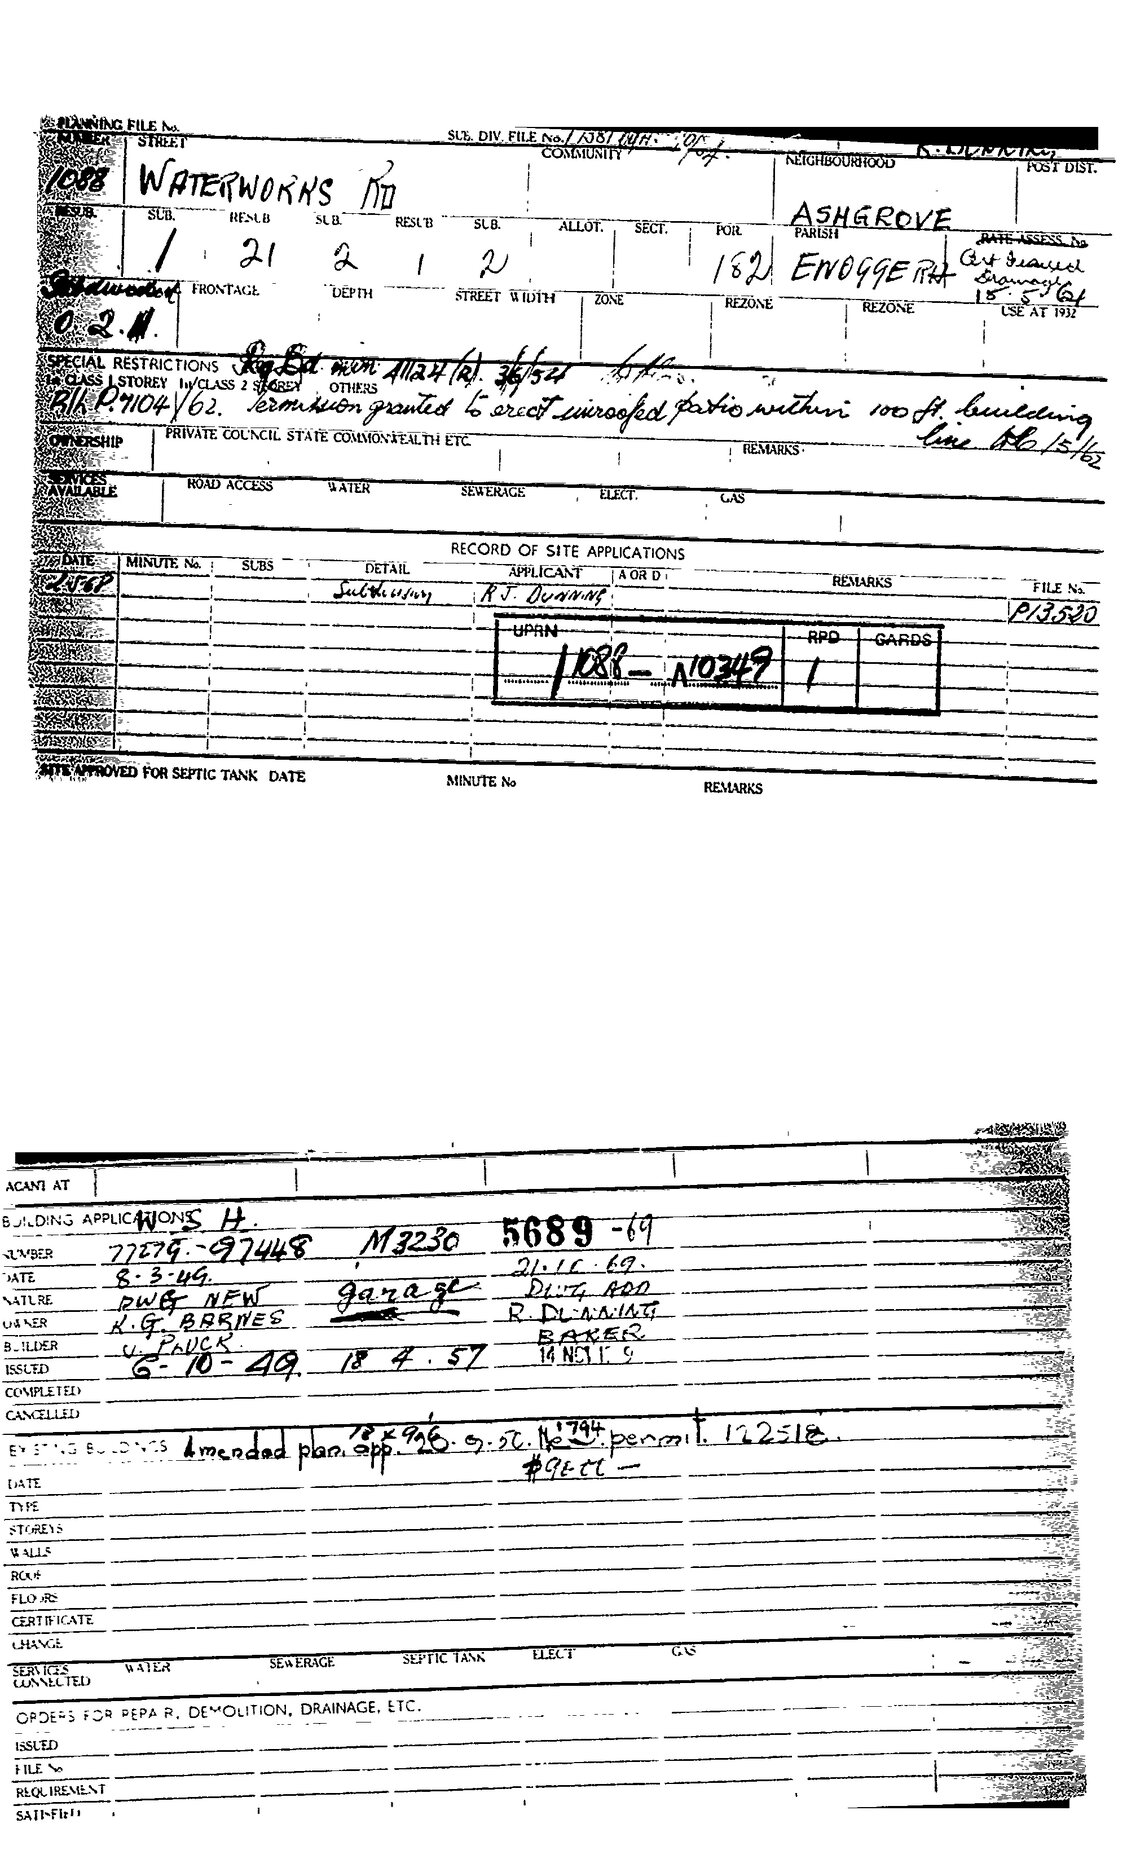 PLANNING FILE No.
SUB. DIV. FILE No.
NUMBER STREET COMMUNITY NEIGHBOURHOOD POST DIST.
1088 WATERWORKS RD ASHGROVE
RESUB. SUB. RESUB SUB. RESUB SUB. ALLOT. SECT. POR. PARISH RATE ASSESS. No
1 21 2 1 2 182 ENOGGERA Cert Issued
Drainage
15.5.61
FRONTAGE DEPTH STREET WIDTH ZONE REZONE REZONE USE AT 1932
0.2.11.
SPECIAL RESTRICTIONS Reg Bd. min 41124 (2). 3/6/54
1st CLASS 1 STOREY 1st/CLASS 2 STOREY OTHERS
P.7104/62. Permission granted to erect unroofed patio within 100 ft. building
line 15/62
OWNERSHIP PRIVATE COUNCIL STATE COMMONWEALTH ETC. REMARKS
SERVICES AVAILABLE ROAD ACCESS WATER SEWERAGE ELECT. GAS
RECORD OF SITE APPLICATIONS
DATE MINUTE No. SUBS DETAIL APPLICANT A OR D REMARKS FILE No.
Subdivision R J. DUNNING P13520
UPRN RPD CARDS
1 1088 — N10349 1
SITE APPROVED FOR SEPTIC TANK DATE MINUTE No REMARKS
ACANT AT
BUILDING APPLICATIONS W S H.
NUMBER 77279.-97448 M3230 5689 -69
DATE 8-3-49. 21.10.69.
NATURE DWG NEW garage DWG ADD
OWNER K.G. BARNES R. DUNNING
BUILDER V. PLUCK. BAKER
ISSUED 6-10-49. 18 4.57 14 NOV
COMPLETED
CANCELLED
EXISTING BUILDINGS Amended plan. app. 26.9.50. No 1794. permit. 122518.
DATE
TYPE
STOREYS
WALLS
ROOF
FLOORS
CERTIFICATE
CHANGE
SERVICES CONNECTED WATER SEWERAGE SEPTIC TANK ELECT GAS
ORDERS FOR REPAIR, DEMOLITION, DRAINAGE, ETC.
ISSUED
FILE No
REQUIREMENT
SATISFIED